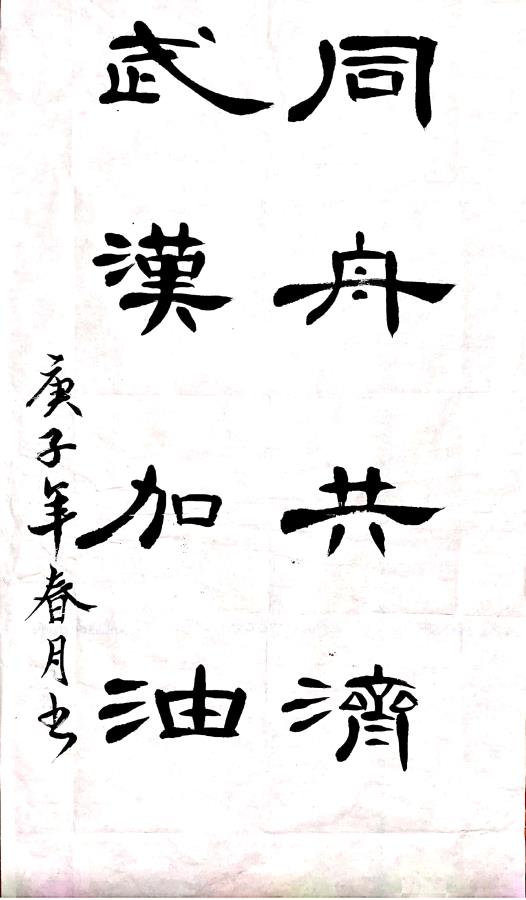 同舟共濟
武漢加油
庚子年春月书